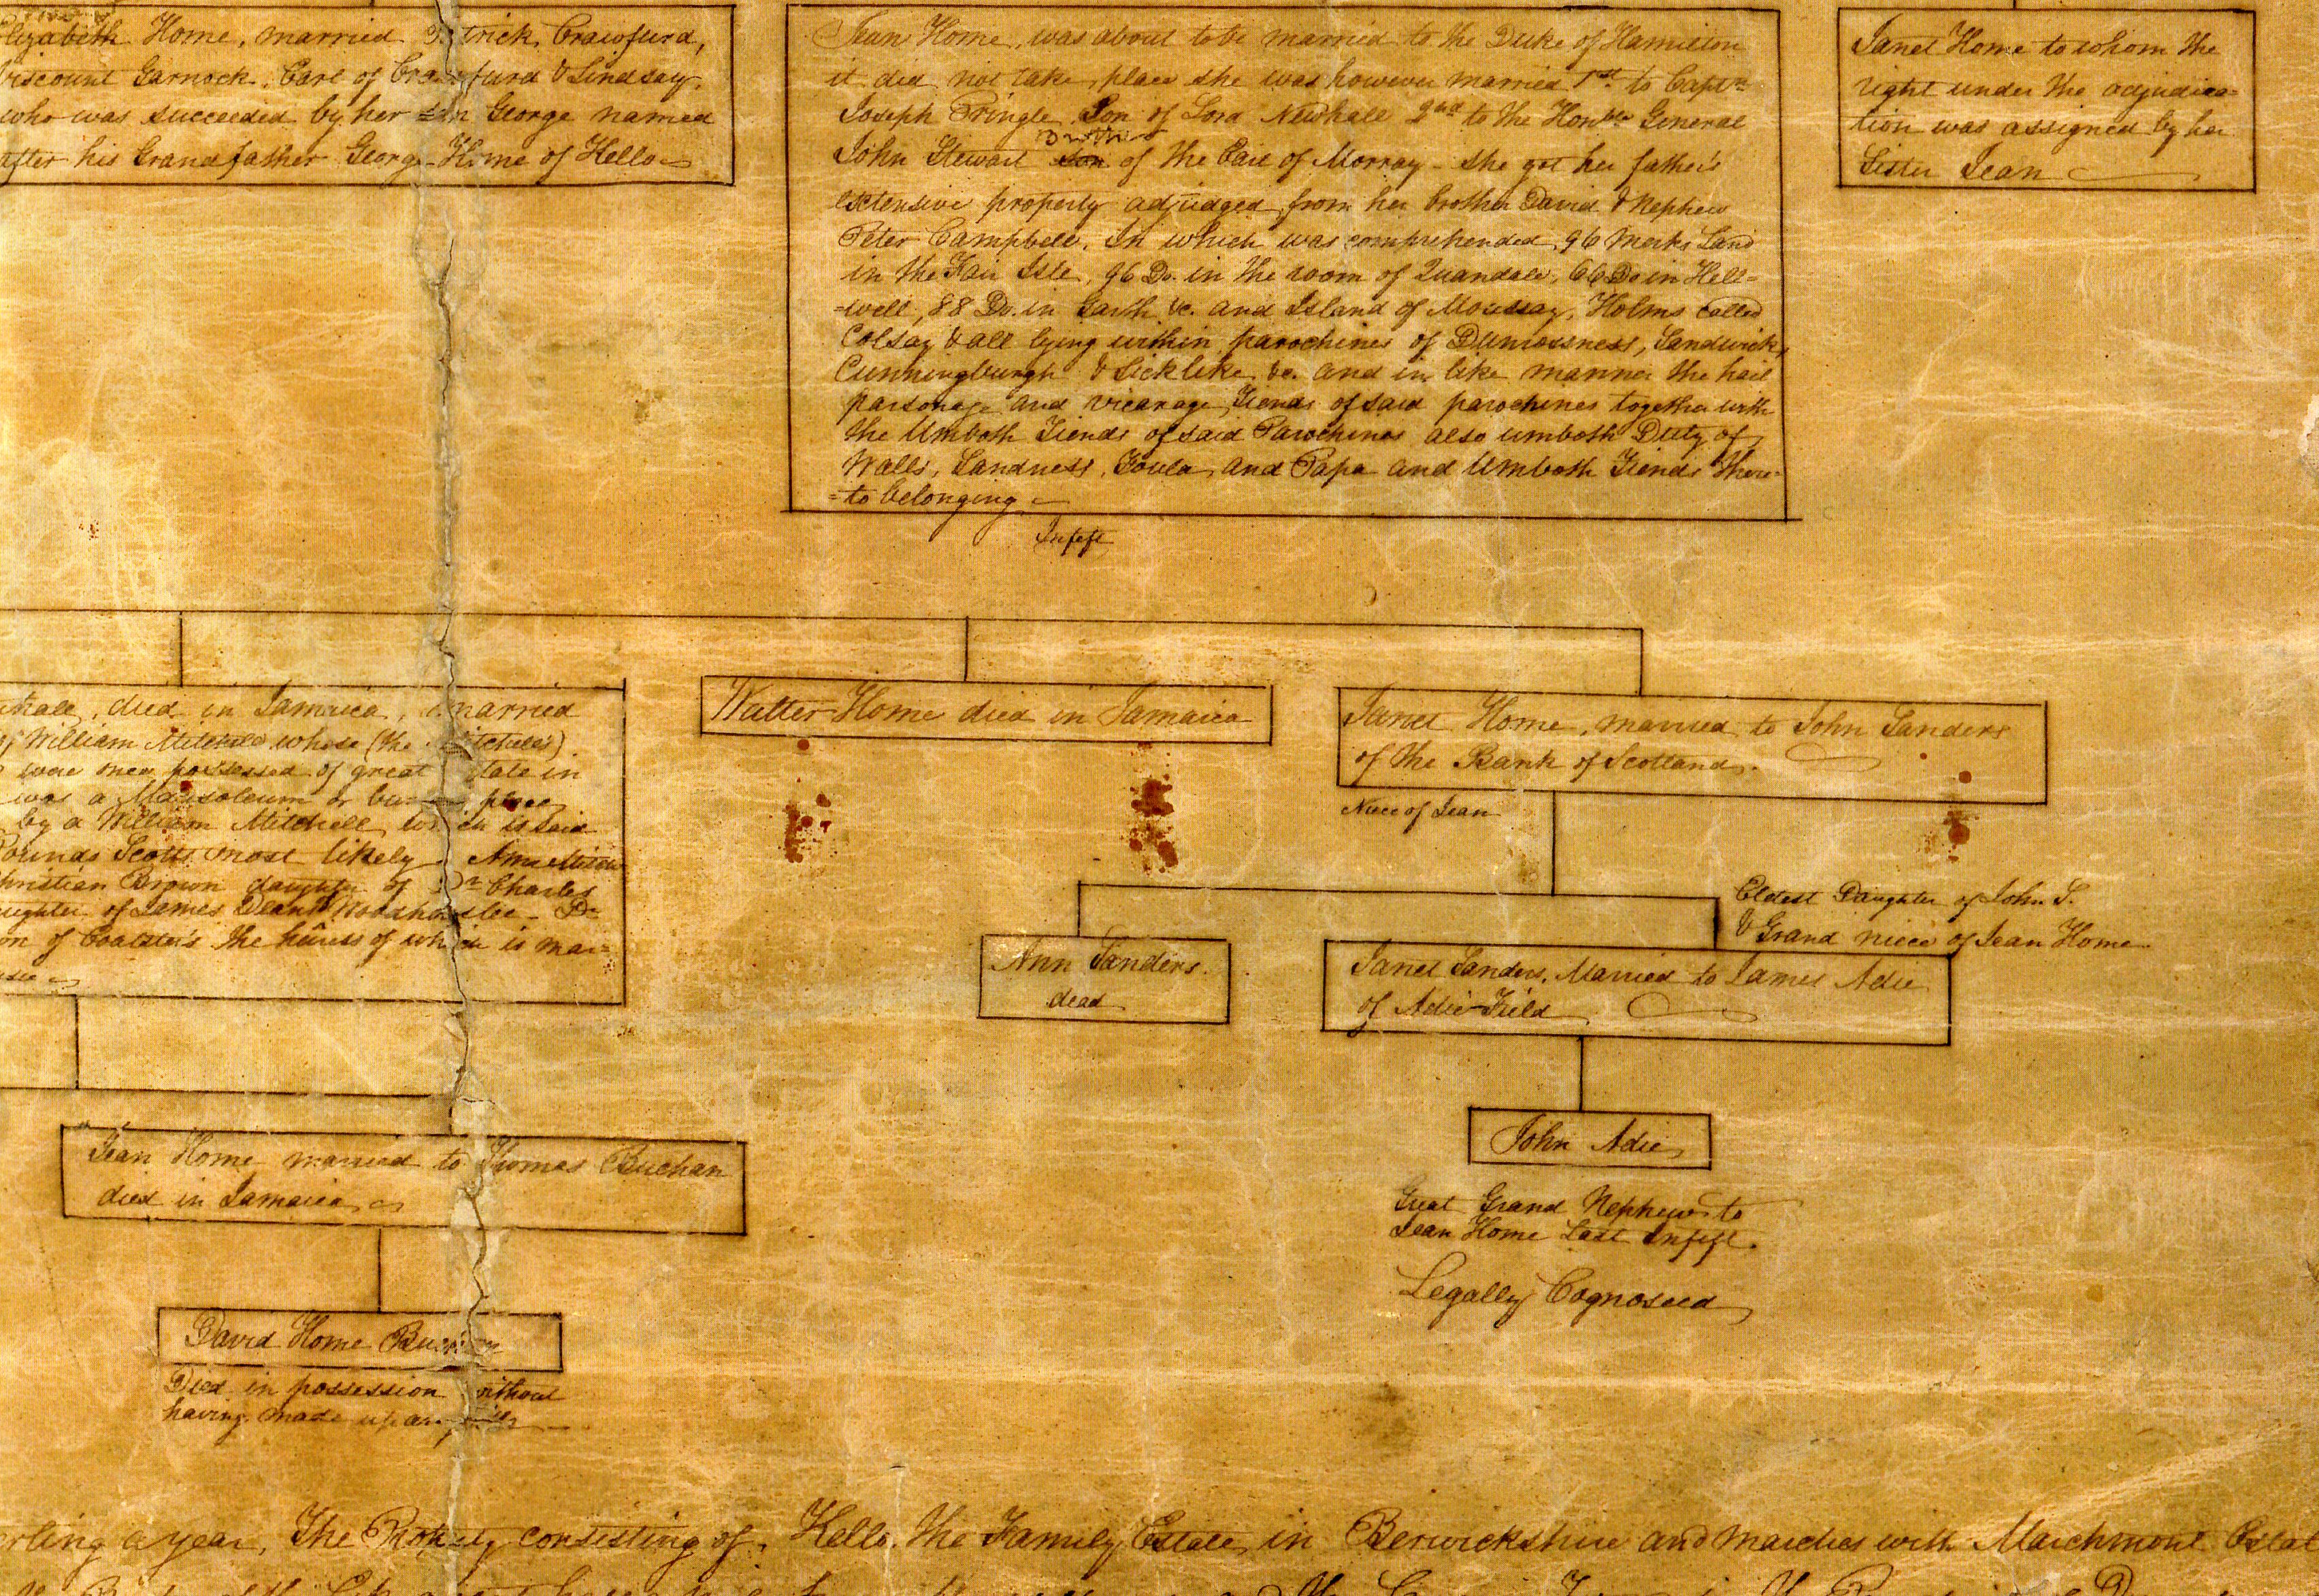 Elizabeth Home, married Patrick Crawfurd,
Viscount Garnock, Earl of Crawfurd & Lindsay,
who was succeeded by her son George named
after his Grandfather George Home of Kello
Jean Home, was about to be married to the Duke of Hamilton
it did not take place she was however married 1st to Captn
Joseph Pringle Son of Lord Newhall 2nd to the Honble General
Brother
John Stewart son of the Earl of Morray - she got her father's
extensive property adjudged from her brother David & Nephew
Peter Campbell, In which was comprehended 96 Merks Land
in the Fair Isle, 96 Do. in the room of Quandale, 66 Do in Hell=
=well, 88 Do. in Garth &c. and Island of Moussay, Holms called
Colsay & all lying within parochines of Dunrossness, Sandwick,
Cunningburgh & Sicklike &c. and in like manner the hail
parsonage and vicarage Tiends of said parochines together with
the Umboth Tiends of said Parochines also umboth Duty of
Walls, Sandness, Foula, and Papa and Umboth Tiends there=
=to belonging
Infeft
Janet Home to whom the
right under the adjudica=
tion was assigned by her
Sister Jean
died in Jamaica, married
of William Mitchell whose (the Mitchells)
were men possessed of great Estate in
was a Mausoleum or burial place
by a William Mitchell, which is said
Pounds Scotts most likely Ann Mitchell
Christian Brown daughter of Dr Charles
daughter of James Deans Woodhouslee - Dr
of Coalston's the heiress of which is mar=
Walter Home died in Jamaica
Janet Home, married to John Sanders
of the Bank of Scotland.
Niece of Jean
Eldest Daughter of John S.
& Grand niece of Jean Home
Ann Sanders
dead
Janet Sanders, Married to James Adie
of Adie Field
John Adie
Great Grand Nephew to
Jean Home Last Infeft.
Legally Cognosced
Jean Home married to Thomas Buchan
died in Jamaica
David Home Buchan
Died in possession without
having made up any titles
erling a year, The Property consisting of, Kello, the Family Estate, in Berwickshire and marches with Marchmont Estat